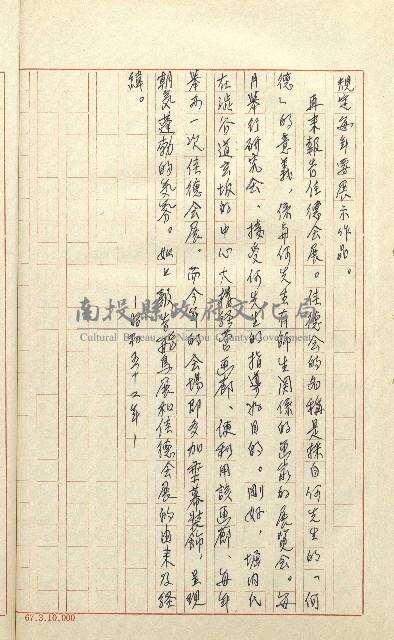 規定每年要展示作品。
再来報告佳德會展。佳德會的名稱是採自何先生的「何
德」的意義,係與何先生有師生關係的畫家的展覽會。每
月舉行研究會、接受何先生的指導為目的。剛好,堀內氏
在澁谷道玄坂的中心大樓經營画廊、便利用該画廊、每年
舉办一次佳德會展。而今年的會場即多加黑幕裝飾,呈現
朝氣蓬勃的氣氛。如上報告飛鳥展和佳德會展的由来及經
緯。
—昭和五十二年—
南投縣政府文化局
Cultural Bureau of Nantou County Government
67.3.10,000